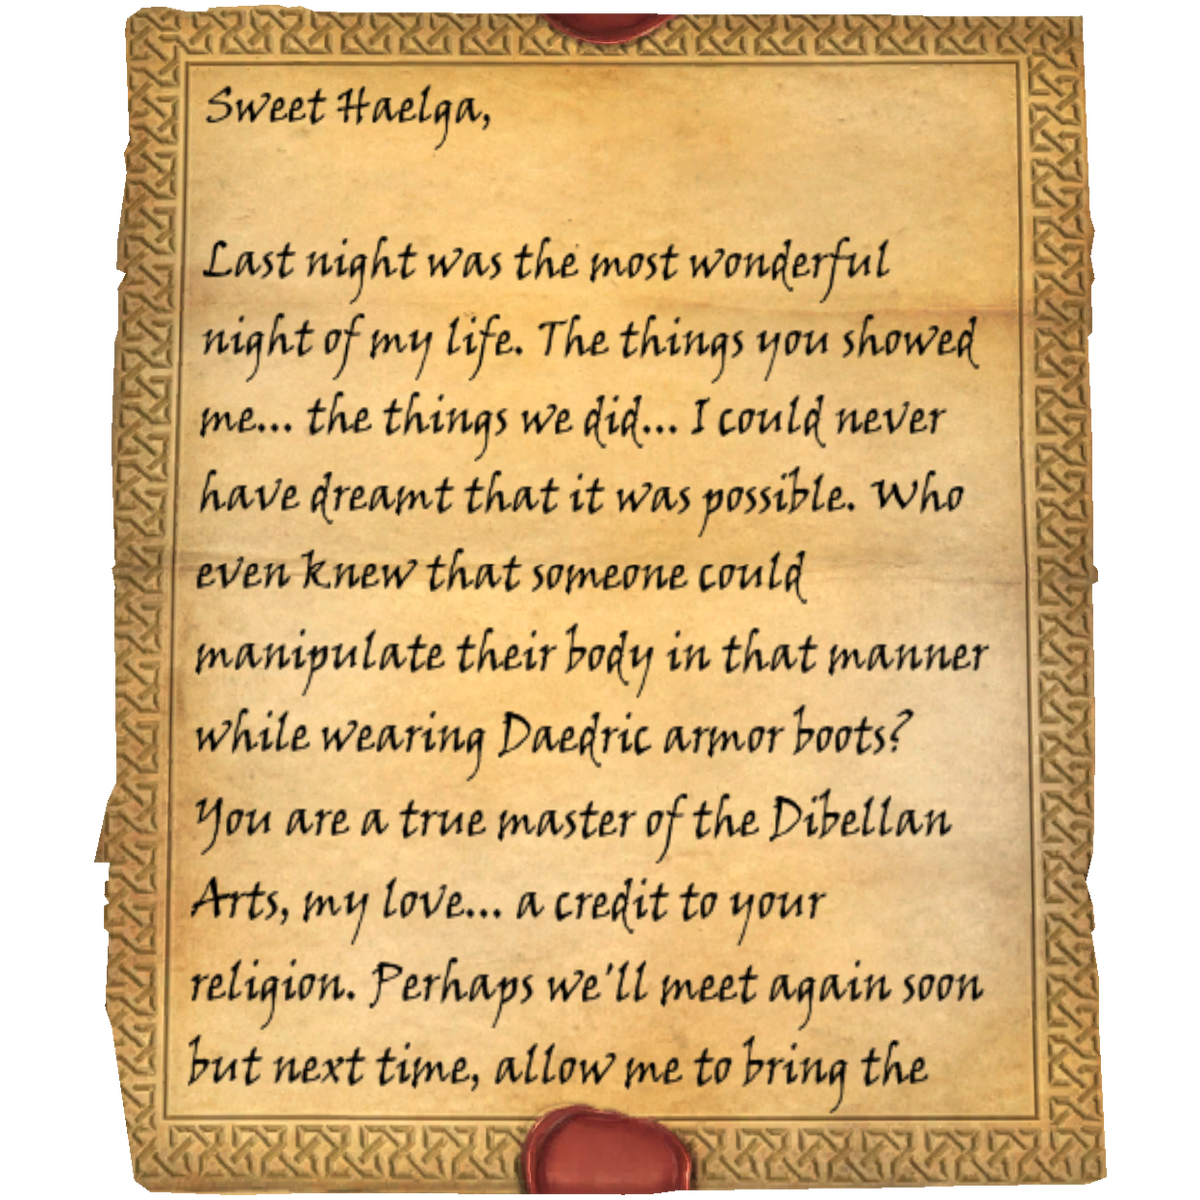 Sweet Haelga,
Last night was the most wonderful
night of my life. The things you showed
me... the things we did... I could never
have dreamt that it was possible. Who
even knew that someone could
manipulate their body in that manner
while wearing Daedric armor boots?
You are a true master of the Dibellan
Arts, my love... a credit to your
religion. Perhaps we'll meet again soon
but next time, allow me to bring the